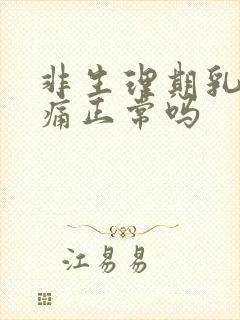 非生理期乳
痛正常吗
江易易